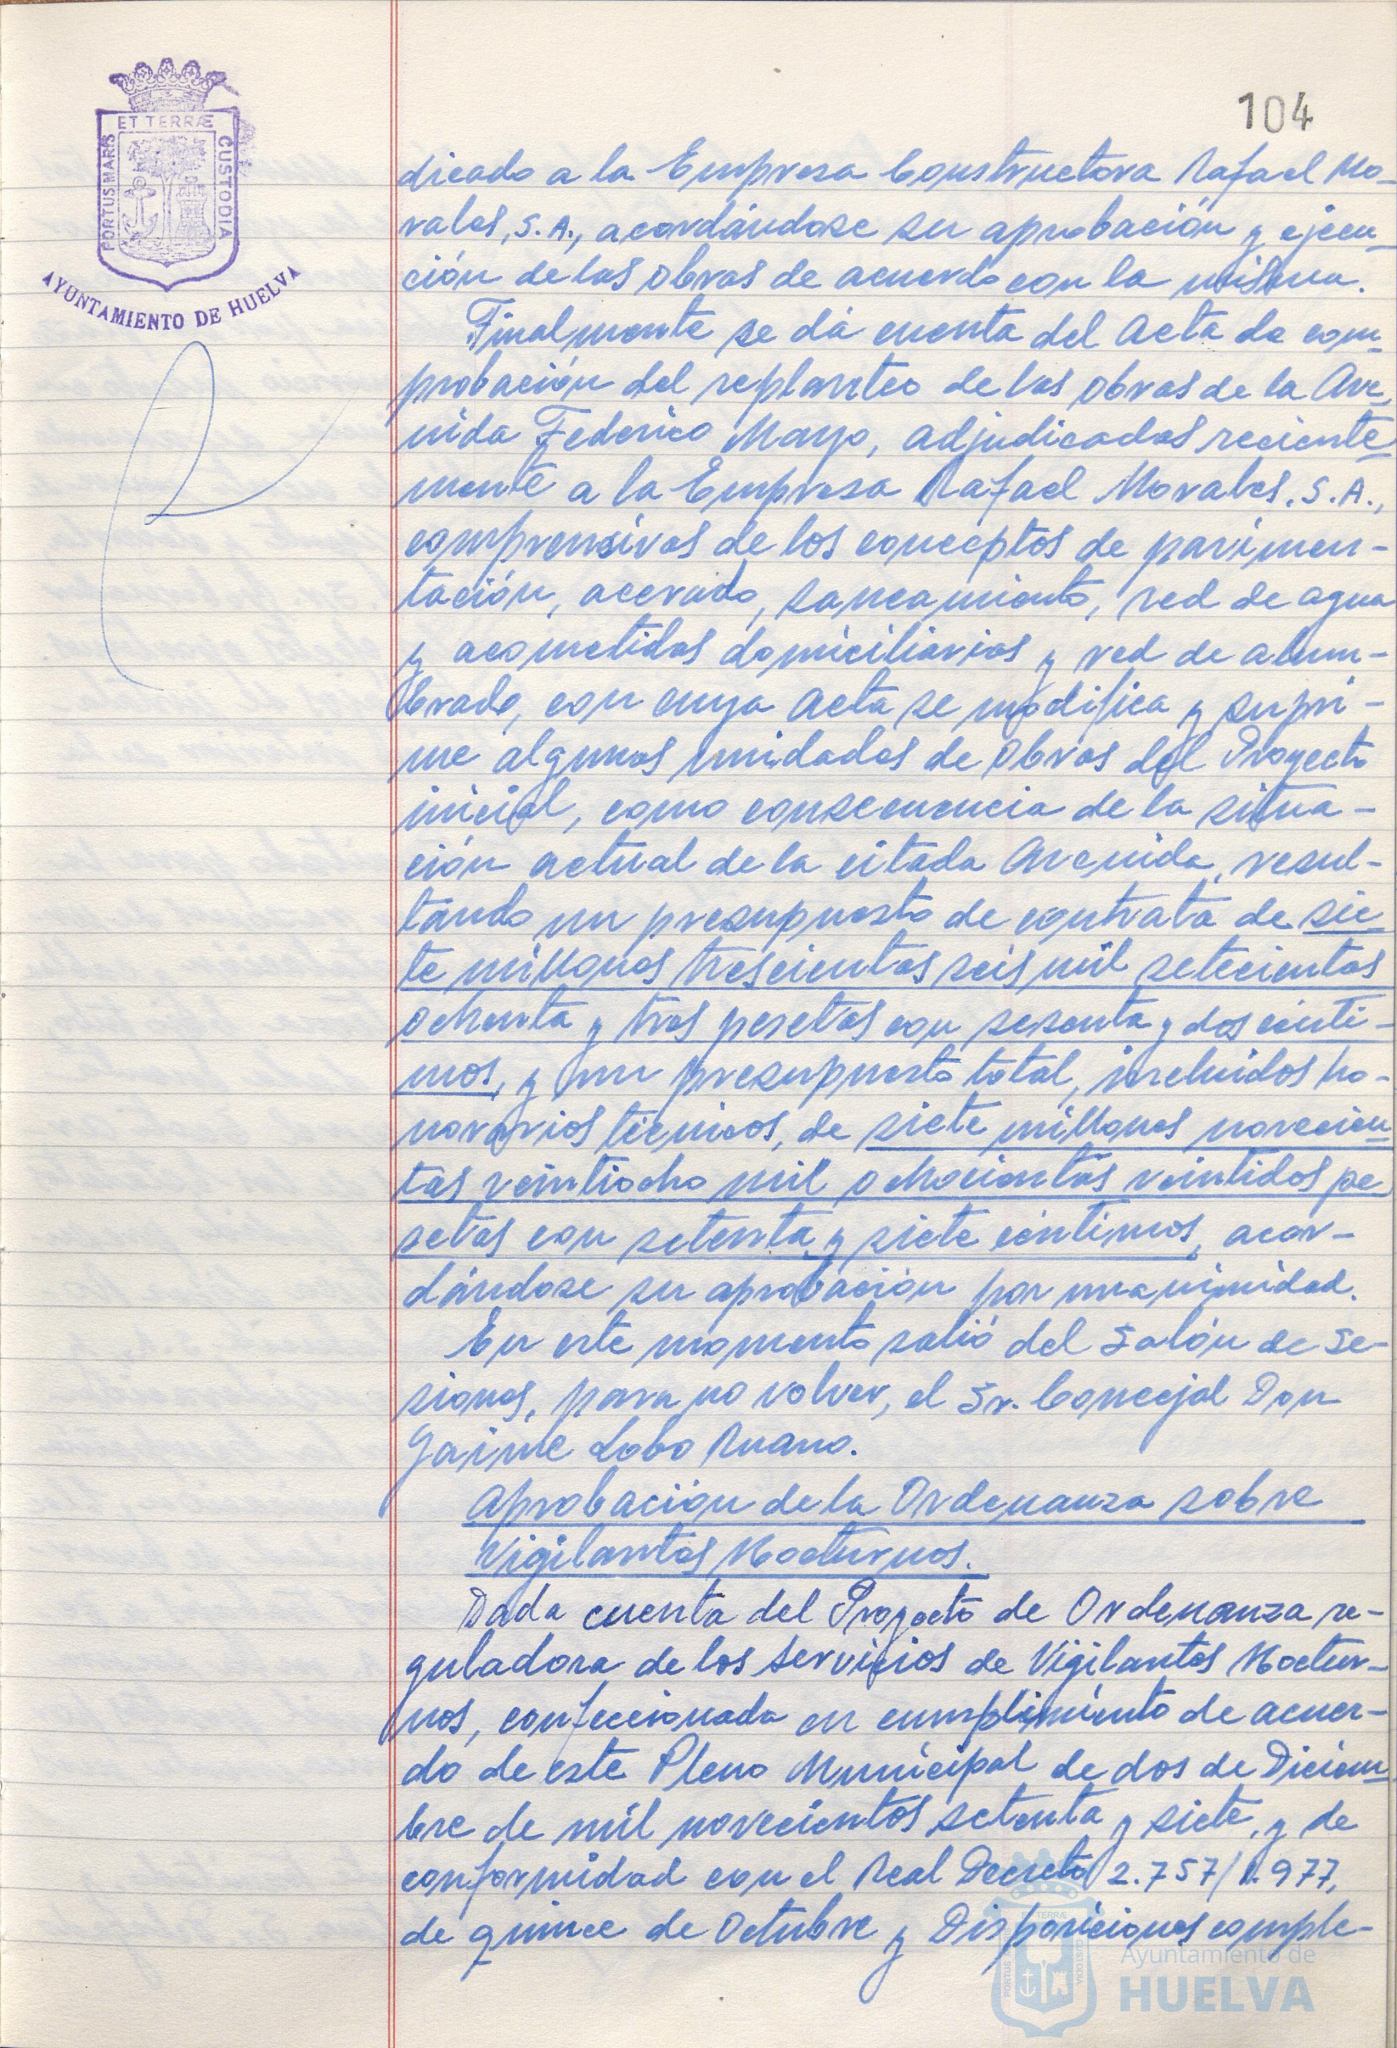 104
ET TERRÆ
PORTUS MARIS
CUSTODIA
AYUNTAMIENTO DE HUELVA
dicado a la Empresa Constructora Rafael Mo-
rales, S.A., acordándose su aprobación y ejecu-
ción de las obras de acuerdo con la misma.
Finalmente se dá cuenta del Acta de com-
probación del replanteo de las obras de la Ave-
nida Federico Mayo, adjudicadas reciente-
mente a la Empresa Rafael Morales, S.A.,
comprensivas de los conceptos de pavimen-
tación, acerado, saneamiento, red de agua
y acometidas domiciliarias y red de alum-
brado, con cuya Acta se modifica y supri-
me algunas unidades de Obras del Proyecto
inicial, como consecuencia de la situa-
ción actual de la citada Avenida, resul-
tando un presupuesto de contrata de sie-
te millones trescientas seis mil setecientas
ochenta y tres pesetas con sesenta y dos cénti-
mos, y un presupuesto total, incluidos ho-
norarios técnicos, de siete millones novecien-
tas veintiocho mil ochocientas veintidos pe-
setas con setenta y siete céntimos, acor-
dándose su aprobación por unanimidad.
En este momento salió del Salón de Se-
siones, para no volver, el Sr. Concejal Don
Jaime Lobo Ruano.
Aprobación de la Ordenanza sobre
Vigilantes Nocturnos.
Dada cuenta del Proyecto de Ordenanza re-
guladora de los servicios de Vigilantes Noctur-
nos, confeccionada en cumplimiento de acuer-
do de este Pleno Municipal de dos de Diciem-
bre de mil novecientos setenta y siete, y de
conformidad con el Real Decreto 2.757/1.977,
de quince de Octubre y Disposiciones comple-
Ayuntamiento de
HUELVA